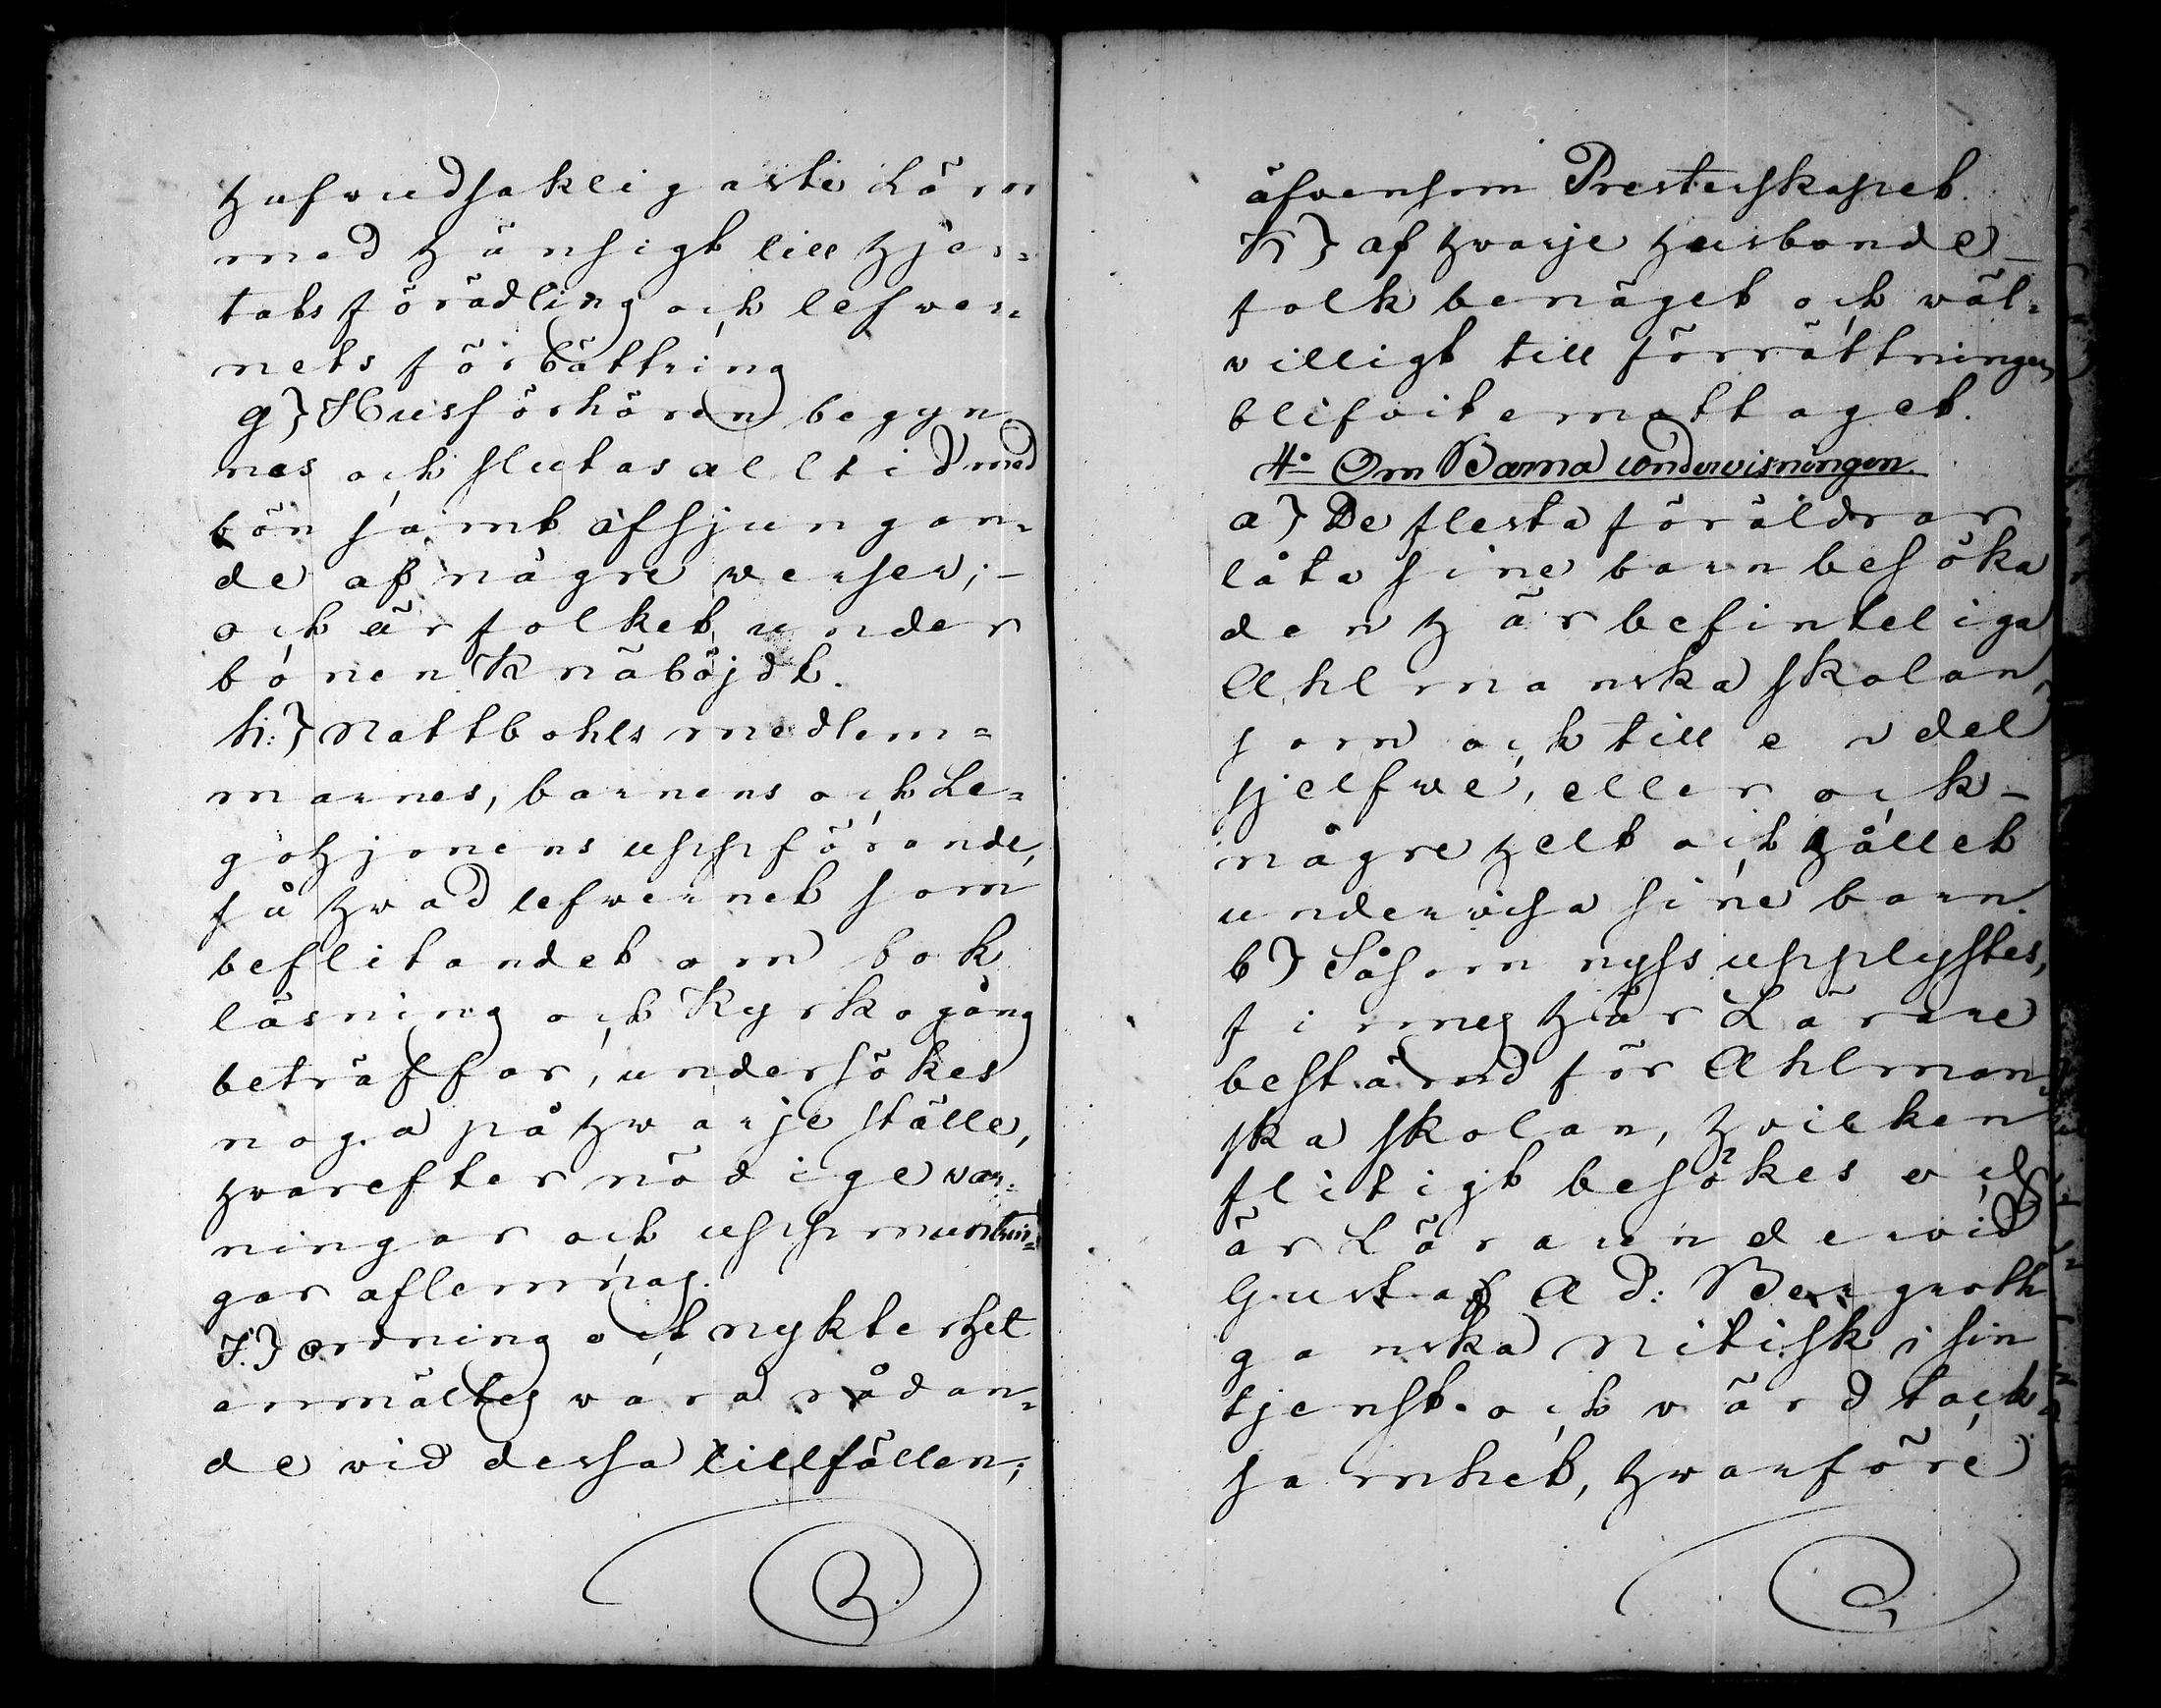 hufvudsakligaste Lärn
med hänsigt till hjer=
tats förädling och lefver=
nets förbättring
g) Husförhören begyn
nas och slutas alltid med
bön samt afsjungan=
de af någre verser; –
och är folket under
bönen Knäböjdt.
h:) Nattbohls medlem=
marnes, barnens och Le=
gohjonens uppförande,
så hvad lefvernet som
beflitandet om bok
läsning och Kyrkogång
beträffar, undersökes
noga på hvarje ställe,
hvarefter nödige var=
ningar och uppmuntrin=
gar aflemnas.
I.) Ordning och nykterhet
anmältes vara rådan=
de vid dessa tillfällen;
äfvensom Presterskapet
K) af hvarje husbonde
folk benäget och väl=
villigt till förrättningen
blifvit emottaget.
4º Om Barna undervisningen.
a) De flesta föräldrar
låta sine barn besöka
den här befinteliga
Ahlmanska skolan,
som ock till en del
sjelfve, eller ock –
någre helt och hållet
undervisa sine barn.
b) Såsom nyss upplystes,
finnes här Lärare
bestämd för Ahlman=
ska skolan, hvilken
flitigt besökes och
är Läraren dervid
Gustaf Ad: Bergroth
ganska nitisk i sin
tjenst och värd tack
samhet, hvarföre